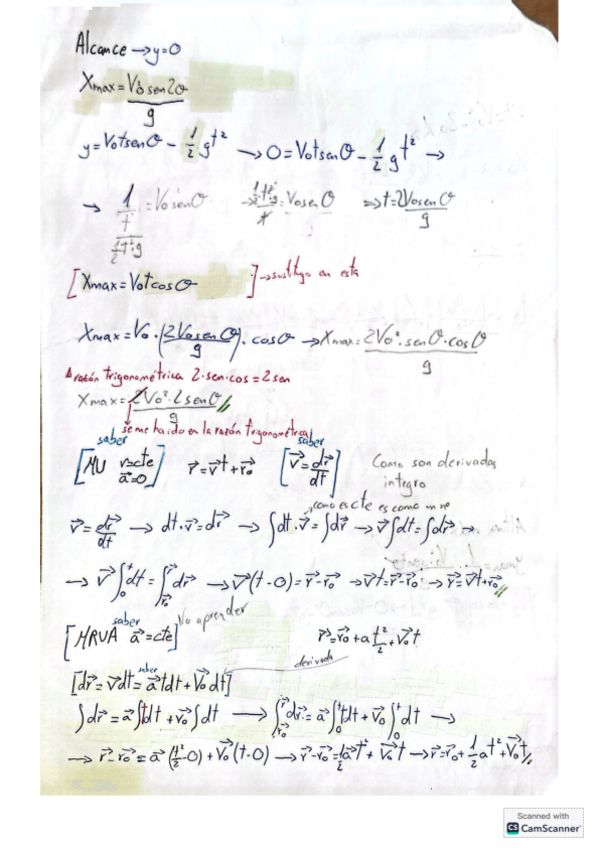 Alcance → y=0
Xmax = Vo² sen2θ / g
y = Votsenθ - 1/2 gt² → 0 = Votsenθ - 1/2 gt² →
= Vosenθ → = Vosenθ ⇒ t = 2Vosenθ / g
[Xmax = Votcosθ] → sustituyo en esta
Xmax = Vo · (2Vosenθ / g) · cosθ → Xmax = 2Vo² · senθ · cosθ / g
razón trigonométrica 2·sen·cos = 2sen
Xmax = 2Vo² · 2senθ / g
se me ha ido en la razón trigonométrica
saber saber
[MU v=cte a=0] r⃗ = v⃗t + r⃗o [v⃗ = dr⃗/dt] Como son derivadas
integro
como es cte es como un no
v⃗ = dr⃗/dt → dt·v⃗ = dr⃗ → ∫dt·v⃗ = ∫dr⃗ → v⃗∫dt = ∫dr⃗ →
→ v⃗∫₀ᵗdt = ∫dr⃗ → v⃗(t-0) = r⃗-r⃗o → v⃗t = r⃗-r⃗o → r⃗ = v⃗t+r⃗o
saber No aprender
[MRUA a⃗=cte] r⃗ = r⃗o + a t²/2 + v⃗o t
derivada
saber
[dr⃗ = v⃗dt = a⃗tdt + v⃗odt]
∫dr⃗ = a⃗∫tdt + v⃗o∫dt → ∫dr⃗ = a⃗∫₀ᵗtdt + v⃗o∫₀ᵗdt →
→ r⃗-r⃗o = a⃗(t²/2-0) + v⃗o(t-0) → r⃗-r⃗o = 1/2 a⃗t² + v⃗o t → r⃗ = r⃗o + 1/2 at² + v⃗o t
Scanned with
CS CamScanner